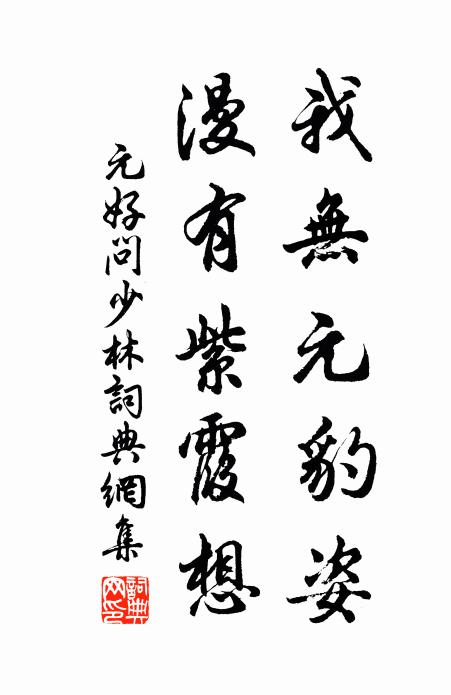 我無元豹姿
漫有紫霞想
元好問少林詞典網集
詞典網印